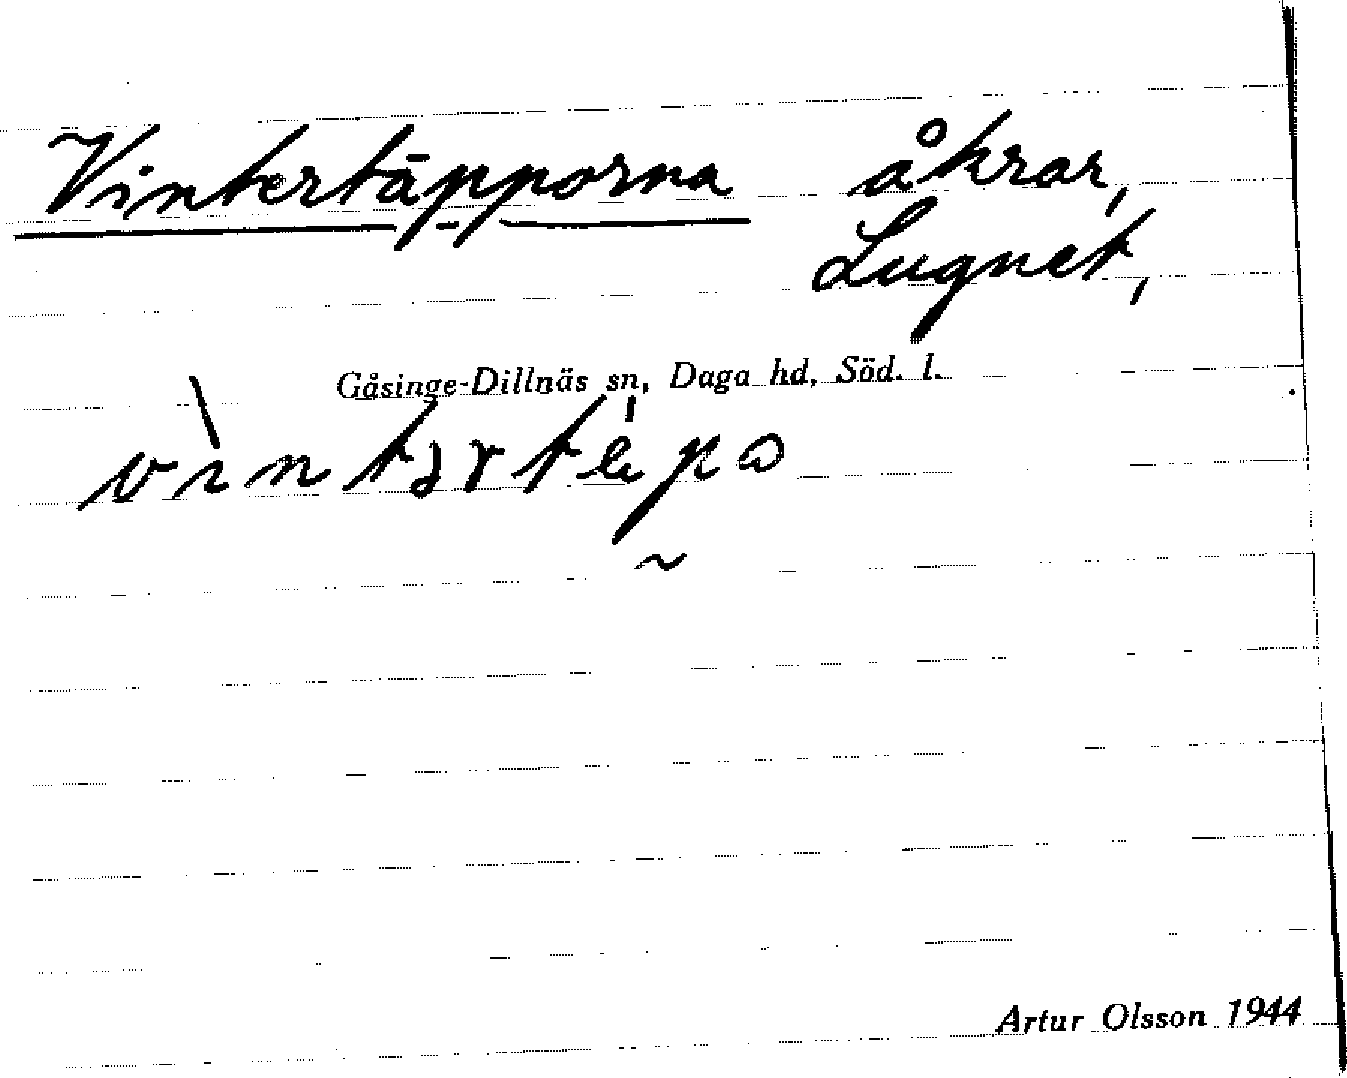 Vintertäpporna åkrar,
Lugnet,
Gåsinge-Dillnäs sn, Daga hd, Söd. l.
Artur Olsson 1944